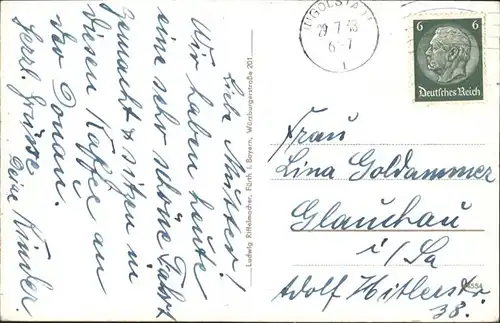 Liebe Mutter!
Wir haben heute
eine sehr schöne Fahrt
gemacht & sitzen in
diesen Kaffee an
der Donau.
Herzl. Grüsse
Deine Kinder.
Ludwig Riffelmacher, Fürth i. Bayern, Würzburgerstraße 201
INGOLSTADT
29.7.
6-7
1
6 6
Deutsches Reich
Frau
Lina Goldammer
Glauchau
i/Sa
Adolf Hitlerstr
38.